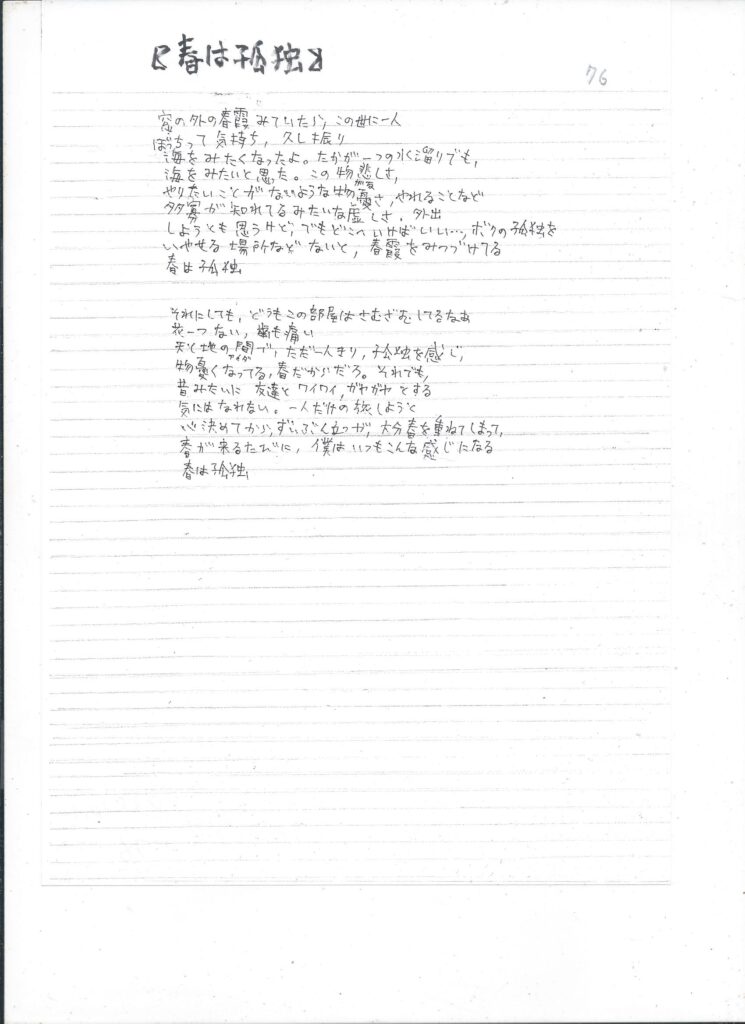 『春は孤独』
76
窓の外の春霞みていたら、この世に一人
ぼっちって気持ち、久し振り
海をみたくなったよ。たかが一つの水溜りでも、
海をみたいと思った。この物悲しさ、
やりたいことがないような物憂さ、やれることなど
多寡が知れてるみたいな虚しさ、外出
しようとも思うけど、でもどこへいけばいい…、ボクの孤独を
いやせる場所などないと、春霞をみつづけてる
春は孤独
それにしても、どうもこの部屋はさむざむしてるなあ
花一つない、歯も痛い
天と地の間で、ただ一人きり、孤独を感じ、
アイダ
物憂くなってる、春だからだろ。それでも、
昔みたいに友達とワイワイ、ガヤガヤとする
気にはなれない。一人だけの旅しようと
心決めてから、ずいぶん立つが、大分春を重ねてしまって、
春が来るたびに、僕はいつもこんな感じになる
春は孤独